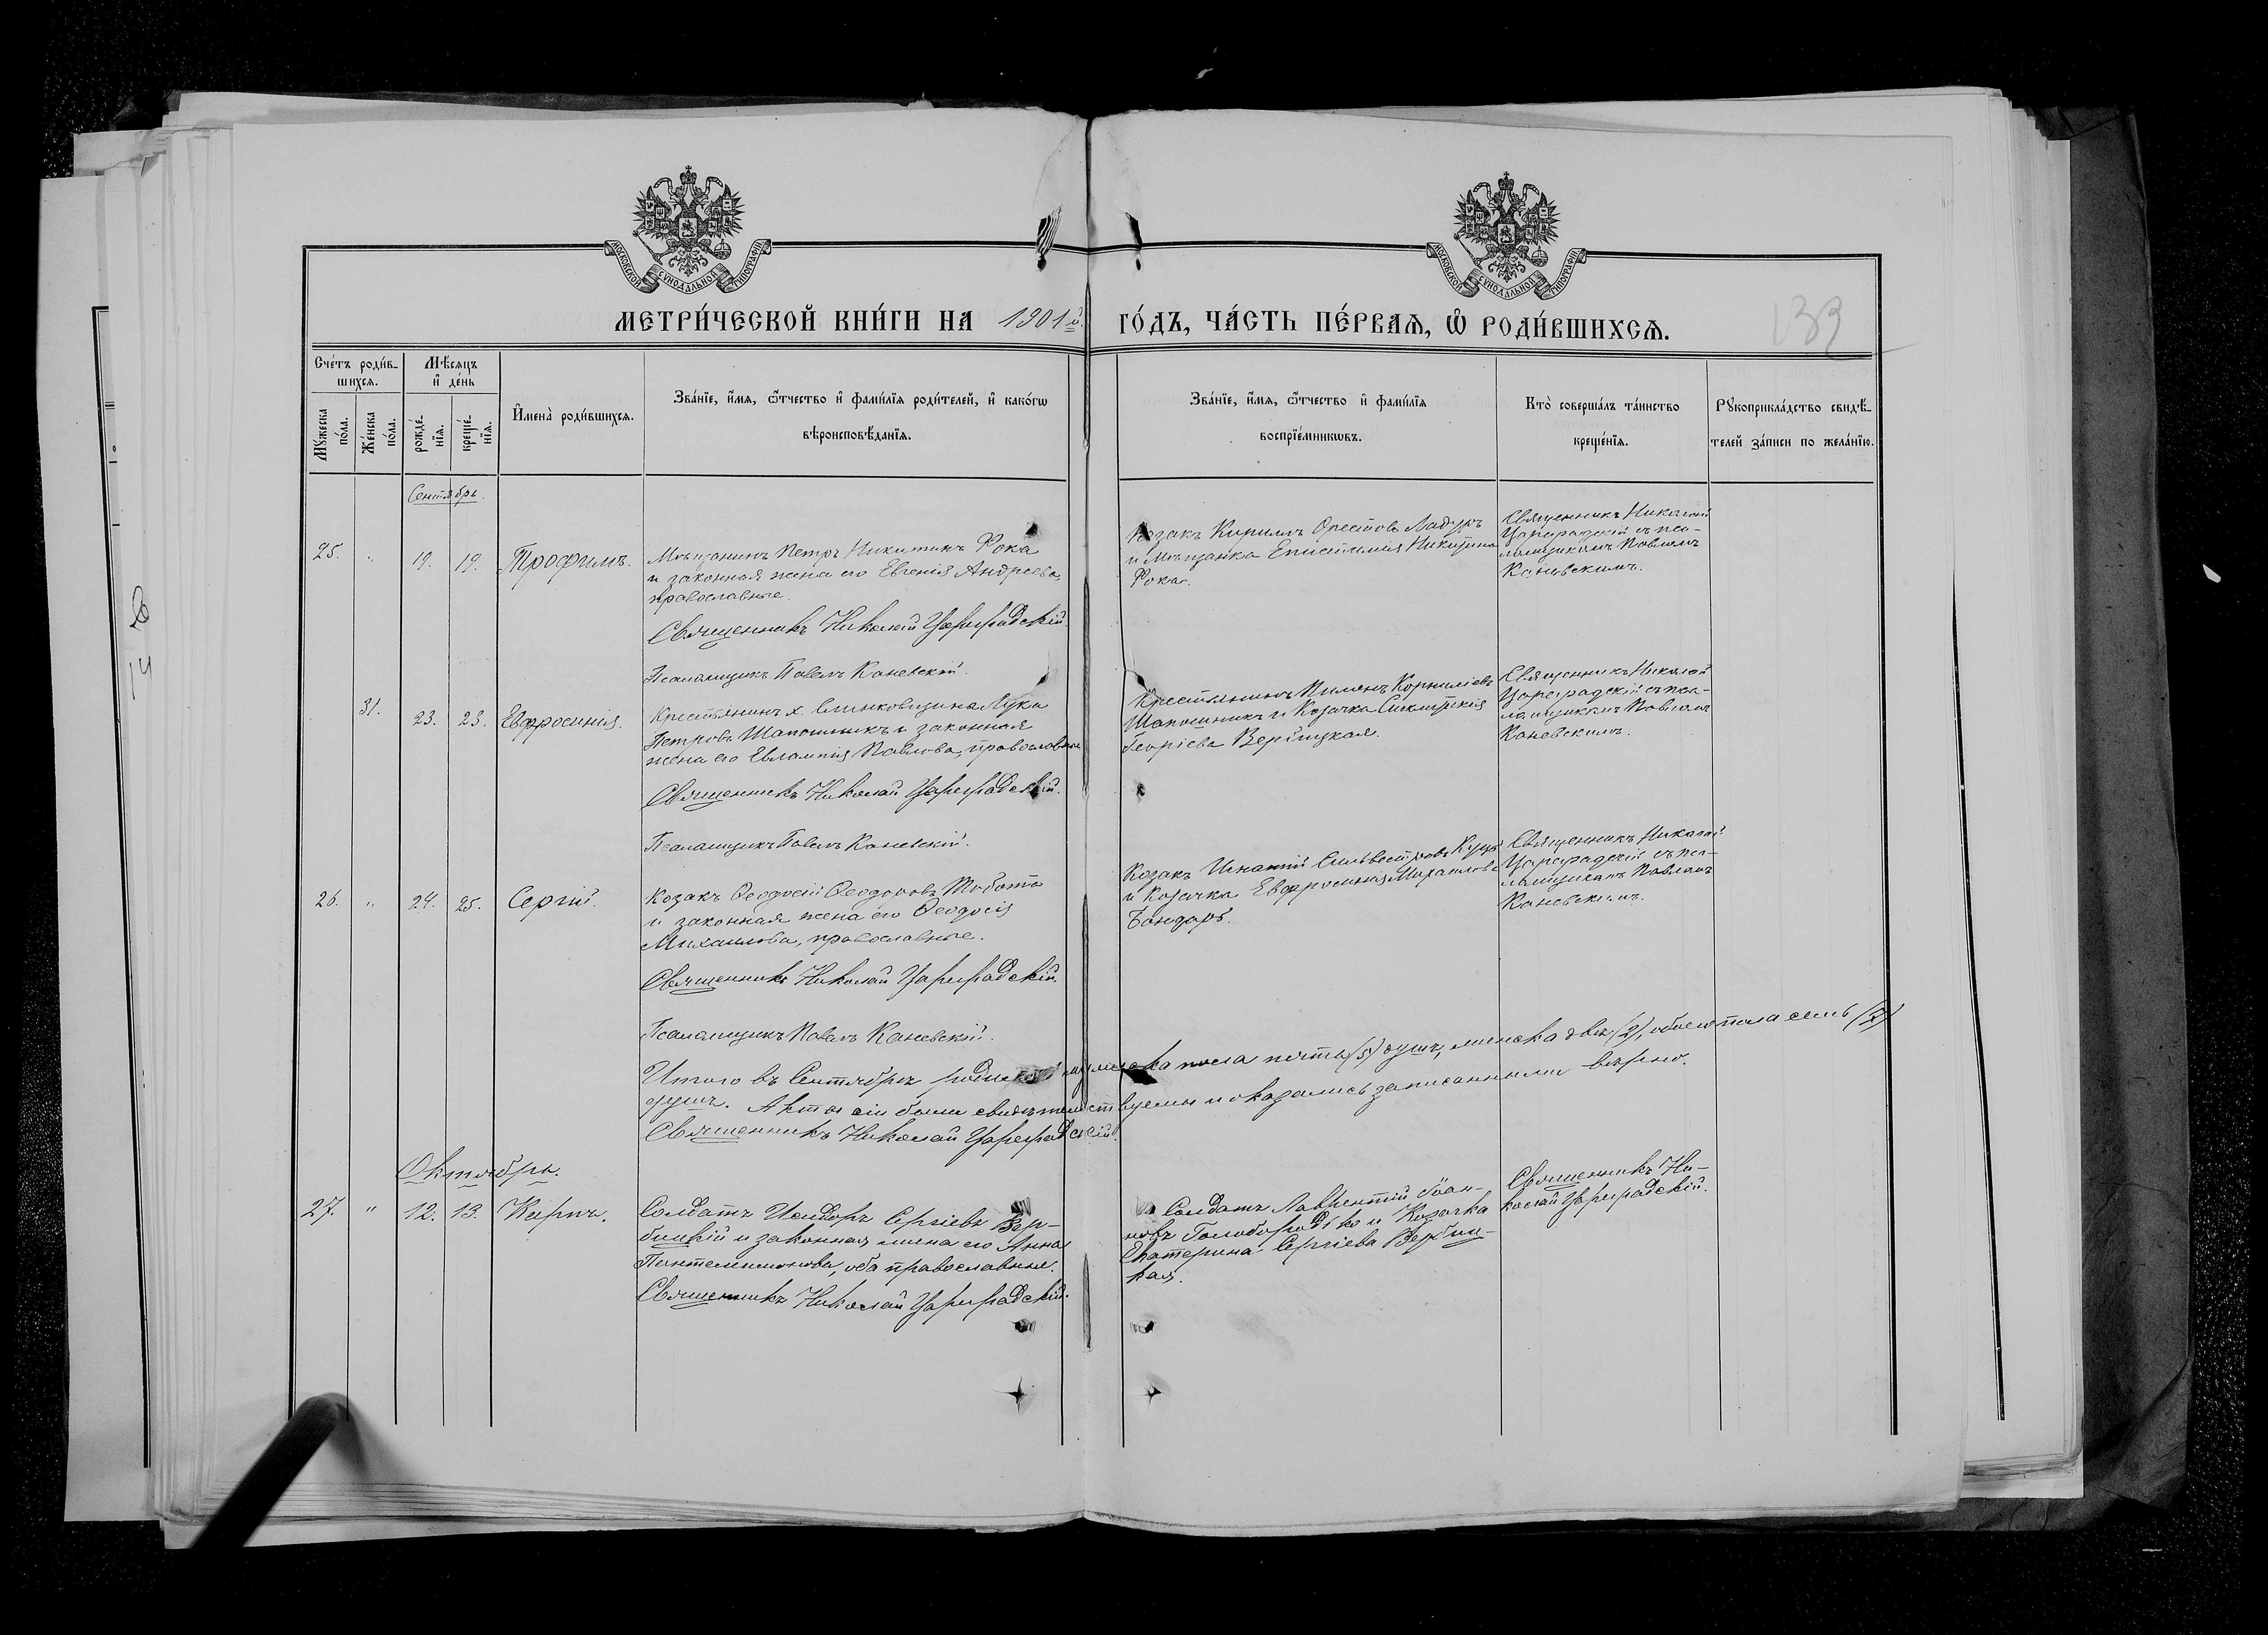 МОСКОВСКОЙ СѴНОДАЛЬНОЙ ТИПОГРАФІИ
МОСКОВСКОЙ СѴНОДАЛЬНОЙ ТИПОГРАФІИ
МЕТРИ́ЧЕСКОЙ КНИ́ГИ НА 1901й ГО́ДЪ, ЧА́СТЬ ПЕ́РВАѦ, Ѽ РОДИ́ВШИХСѦ.
139
Сче́тъ роди́в-
шихсѧ.
Мѣ́сѧцъ
и҆ де́нь
Мꙋ́жеска
по́ла.
Же́нска
по́ла.
рожде́-
нїѧ.
креще́-
нїѧ.
И҆мена̀ роди́вшихсѧ.
Зва́нїе, и҆́мѧ, ѻ҆́тчество и҆ фами́лїѧ роди́телей, и҆ како́гѡ
вѣроисповѣ́данїѧ.
Зва́нїе, и҆́мѧ, ѻ҆́тчество и҆ фами́лїѧ
воспрїе́мникѡвъ.
Кто̀ соверша́лъ та́инство
креще́нїѧ.
Рꙋкоприкла́дство свидѣ́-
телей за́писи по жела́нїю.
Сентябрь.
25. " 19. 19. Трофимъ.
Мѣщанинъ Петръ Никитинъ Рока
и законная жена его Евгенія Андреева,
православные.
Священникъ Николай Цареградскій.
Псаломщикъ Павелъ Каневскій.
Козакъ Кириллъ Орестовъ Ладуръ
и мѣщанка Епистимія Никитина
Рока.
Священникъ Николай
Цареградскій съ пса-
ломщикомъ Павломъ
Каневскимъ.
31. 23. 23. Евфросинія.
Крестьянинъ х. Слинковщина Лука
Петровъ Шапошникъ и законная
жена его Евлампія Павлова, православные
Священникъ Николай Цареградскій.
Псаломщикъ Павелъ Каневскій.
Крестьянинъ Пименъ Корниліевъ
Шапошникъ и Козачка
Георгіева Вербицкая.
Священникъ Николай
Цареградскій съ пса-
ломщикомъ Павломъ
Каневскимъ.
26. " 24. 25. Сергій.
Козакъ Ѳеодосій Ѳеодоровъ
и законная жена его Ѳеодосія
Михаилова, православные.
Священникъ Николай Цареградскій.
Псаломщикъ Павелъ Каневскій.
Козакъ Игнатій Сильвестровъ Куцъ
и Козачка Евфросинія Михаилова
Бондарь.
Священникъ Николай
Цареградскій съ пса-
ломщикомъ Павломъ
Каневскимъ.
Итого въ Сентябрѣ родилось мужеска пола пять (5) душъ, женска двѣ (2), обоего пола семь (7)
душъ. Акты сіи были свидѣтельствуемы и оказались записанными вѣрно.
Священникъ Николай Цареградскій.
Октябрь.
27. " 12. 13. Карпъ.
Солдатъ Исидоръ Сергіевъ Вер-
бицкій и законная жена его Анна
Пантелеимонова, оба православные.
Священникъ Николай Цареградскій.
Солдатъ Лаврентій Іоан-
новъ Голобородько и Козачка
Екатерина Сергіева Вербиц-
кая.
Священникъ Ни-
колай Цареградскій.